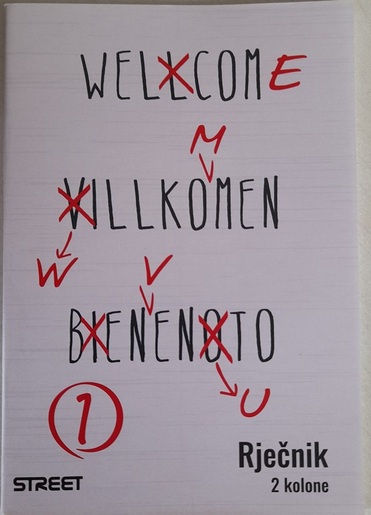 WELLCOME
M
VILLKOMEN
W V
BIENENOTO
U
1
Rječnik
STREET 2 kolone